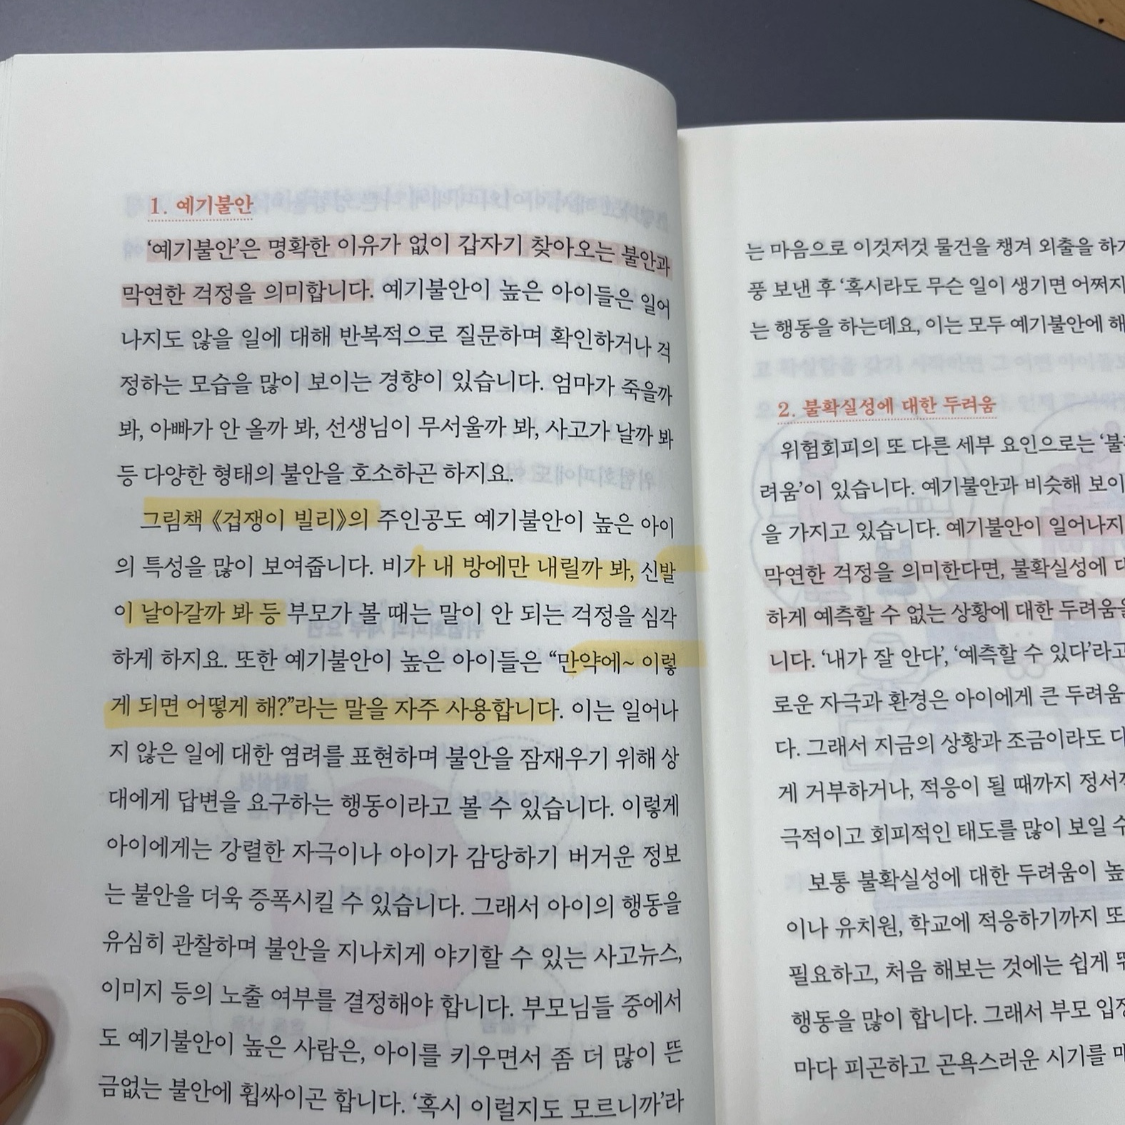 1. 예기불안
‘예기불안’은 명확한 이유가 없이 갑자기 찾아오는 불안과
막연한 걱정을 의미합니다. 예기불안이 높은 아이들은 일어
나지도 않을 일에 대해 반복적으로 질문하며 확인하거나 걱
정하는 모습을 많이 보이는 경향이 있습니다. 엄마가 죽을까
봐, 아빠가 안 올까 봐, 선생님이 무서울까 봐, 사고가 날까 봐
등 다양한 형태의 불안을 호소하곤 하지요.
그림책 《겁쟁이 빌리》의 주인공도 예기불안이 높은 아이
의 특성을 많이 보여줍니다. 비가 내 방에만 내릴까 봐, 신발
이 날아갈까 봐 등 부모가 볼 때는 말이 안 되는 걱정을 심각
하게 하지요. 또한 예기불안이 높은 아이들은 “만약에~ 이렇
게 되면 어떻게 해?”라는 말을 자주 사용합니다. 이는 일어나
지 않은 일에 대한 염려를 표현하며 불안을 잠재우기 위해 상
대에게 답변을 요구하는 행동이라고 볼 수 있습니다. 이렇게
아이에게는 강렬한 자극이나 아이가 감당하기 버거운 정보
는 불안을 더욱 증폭시킬 수 있습니다. 그래서 아이의 행동을
유심히 관찰하며 불안을 지나치게 야기할 수 있는 사고뉴스,
이미지 등의 노출 여부를 결정해야 합니다. 부모님들 중에서
도 예기불안이 높은 사람은, 아이를 키우면서 좀 더 많이 뜬
금없는 불안에 휩싸이곤 합니다. ‘혹시 이럴지도 모르니까’라
는 마음으로 이것저것 물건을 챙겨 외출을 하
풍 보낸 후 ‘혹시라도 무슨 일이 생기면 어쩌지
는 행동을 하는데요, 이는 모두 예기불안에 해
2. 불확실성에 대한 두려움
위험회피의 또 다른 세부 요인으로는 ‘불
려움’이 있습니다. 예기불안과 비슷해 보이
을 가지고 있습니다. 예기불안이 일어나지
막연한 걱정을 의미한다면, 불확실성에 대
하게 예측할 수 없는 상황에 대한 두려움을
니다. ‘내가 잘 안다’, ‘예측할 수 있다’라고
로운 자극과 환경은 아이에게 큰 두려움
다. 그래서 지금의 상황과 조금이라도 다
게 거부하거나, 적응이 될 때까지 정서
극적이고 회피적인 태도를 많이 보일 수
보통 불확실성에 대한 두려움이 높
이나 유치원, 학교에 적응하기까지 또
필요하고, 처음 해보는 것에는 쉽게
행동을 많이 합니다. 그래서 부모 입
마다 피곤하고 곤욕스러운 시기를